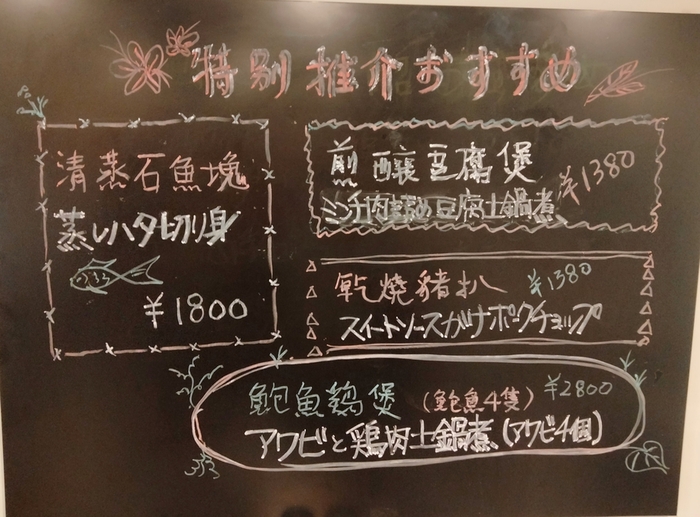 特别推介おすすめ
清蒸石魚塊
蒸しハタ切り身
¥1800
煎釀豆腐煲 ¥1380
ミンチ肉詰め豆腐土鍋煮
乾燒豬扒 ¥1380
スイートソースがけポークチョップ
鮑魚鷄煲(鮑魚4隻) ¥2800
アワビと鶏肉土鍋煮(アワビ4個)